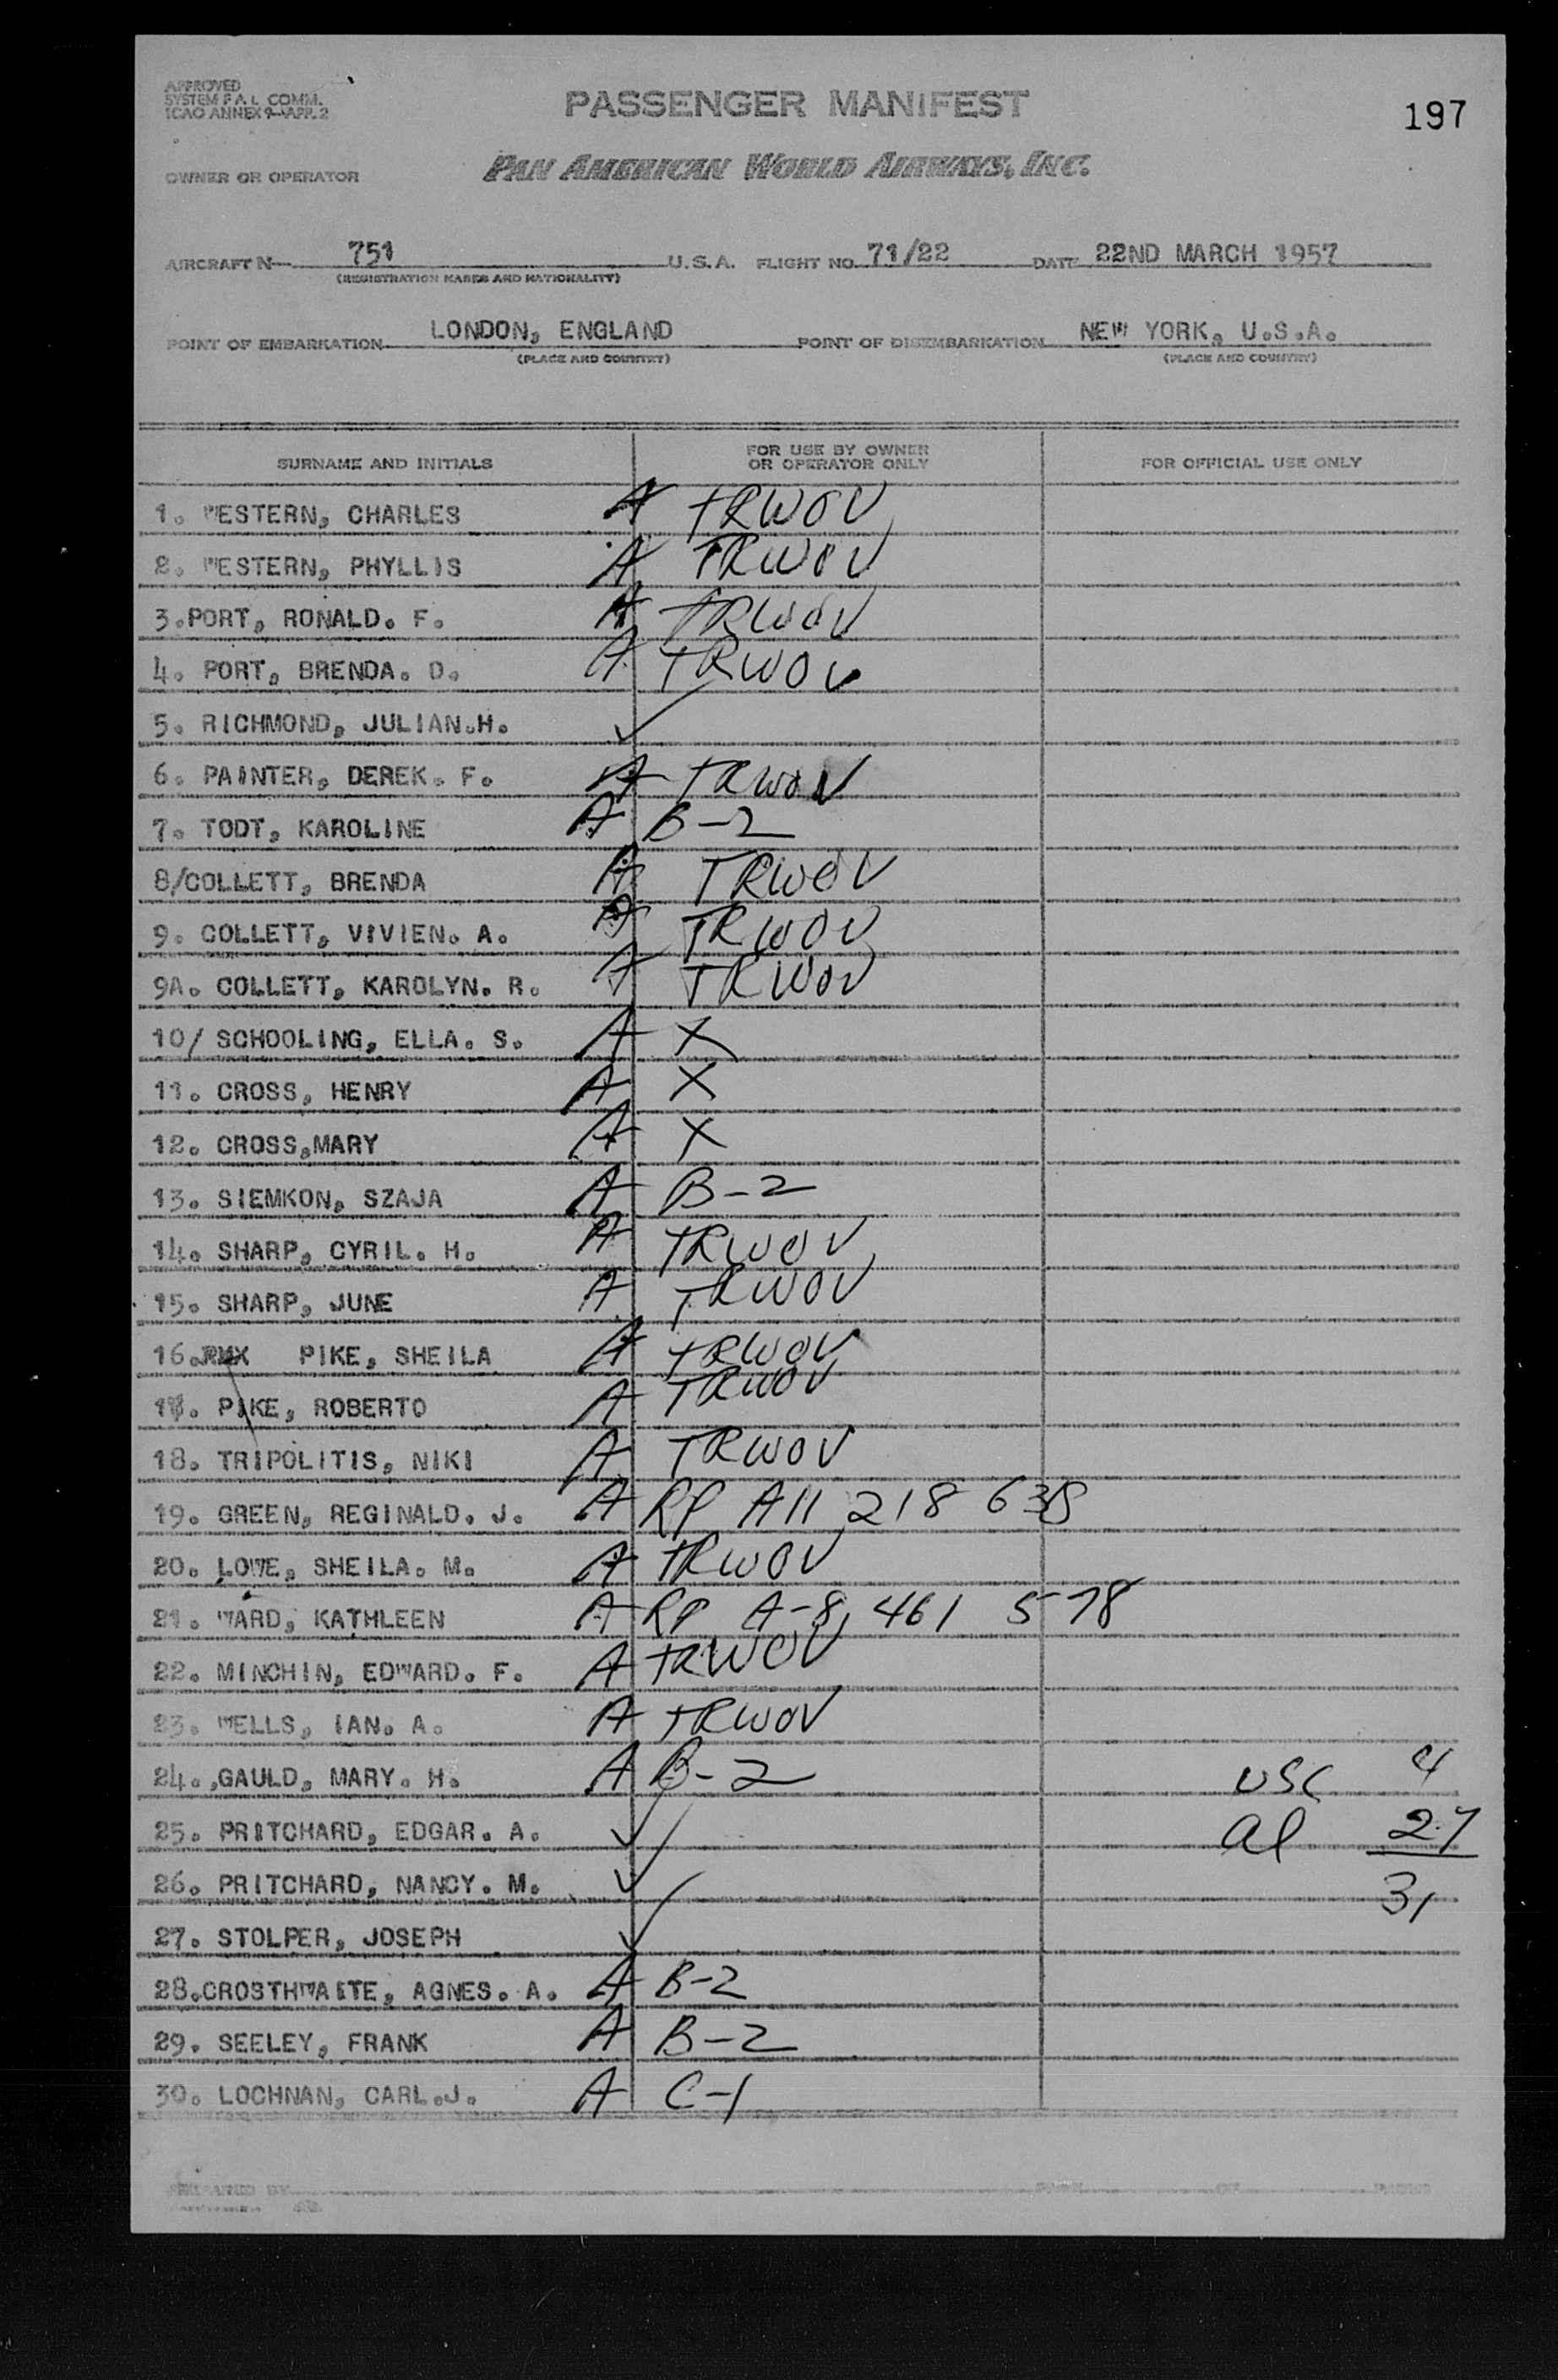 APPROVED
SYSTEM F A L COMM.
ICAO ANNEX 9-APP. 2
PASSENGER MANIFEST
197
OWNER OR OPERATOR
PAN AMERICAN WORLD AIRWAYS, INC.
AIRCRAFT N 751 U.S.A. FLIGHT NO. 71/22 DATE 22ND MARCH 1957
(REGISTRATION MARKS AND NATIONALITY)
POINT OF EMBARKATION LONDON, ENGLAND POINT OF DISEMBARKATION NEW YORK, U.S.A.
(PLACE AND COUNTRY) (PLACE AND COUNTRY)
SURNAME AND INITIALS FOR USE BY OWNER OR OPERATOR ONLY FOR OFFICIAL USE ONLY
1. WESTERN, CHARLES A TRWOV
2. WESTERN, PHYLLIS A TRWOV
3.PORT, RONALD. F. A TRWOV
4. PORT, BRENDA. D. A TRWOV
5. RICHMOND, JULIAN.H. ✓
6. PAINTER, DEREK. F. A TRWOV
7. TODT, KAROLINE A B-2
8/COLLETT, BRENDA A TRWOV
9. COLLETT, VIVIEN. A. A TRWOV
9A. COLLETT, KAROLYN. R. A TRWOV
10/ SCHOOLING, ELLA. S. A X
11. CROSS, HENRY A X
12. CROSS,MARY A X
13. SIEMKON, SZAJA A B-2
14. SHARP, CYRIL. H. A TRWOV
15. SHARP, JUNE A TRWOV
16. PIKE, SHEILA A TRWOV
17. PIKE, ROBERTO A TRWOV
18. TRIPOLITIS, NIKI A TRWOV
19. GREEN, REGINALD. J. A RP A11 218 638
20. LOWE, SHEILA. M. A TRWOV
21. WARD, KATHLEEN A RP A-8,461 578
22. MINCHIN, EDWARD. F. A TRWOV
23. WELLS, IAN. A. A TRWOV
24. GAULD, MARY. H. A B-2 USC 4
25. PRITCHARD, EDGAR. A. ✓ al 27
26. PRITCHARD, NANCY. M. ✓ 31
27. STOLPER, JOSEPH ✓
28.CROSTHWAITE, AGNES. A. A B-2
29. SEELEY, FRANK A B-2
30. LOCHNAN, CARL.J. A C-1
PREPARED BY